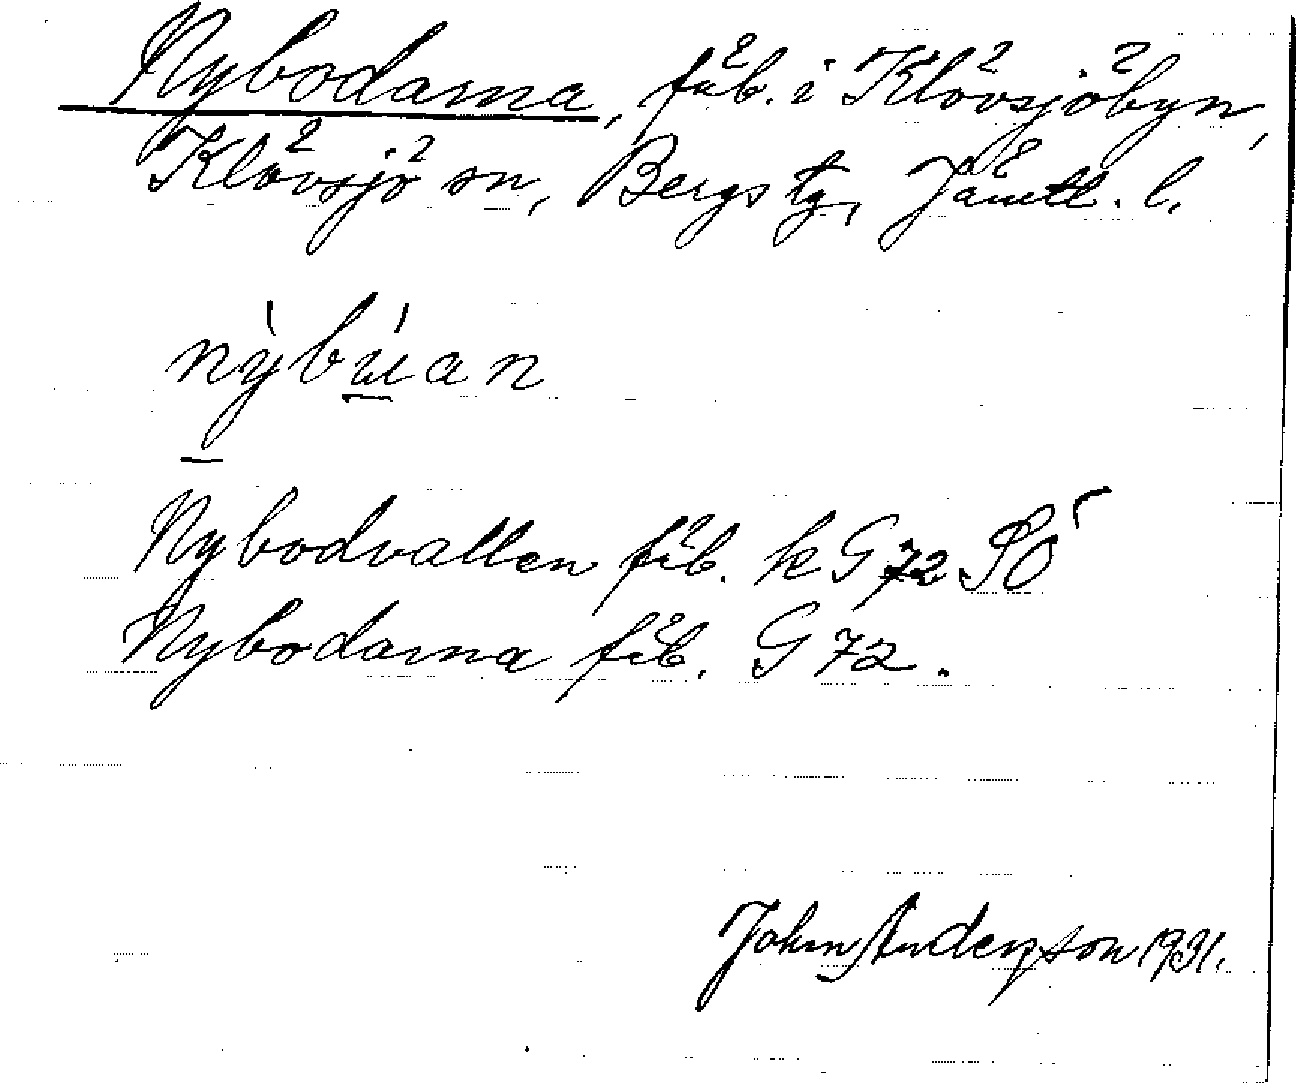 Nybodarna, fäb. i Klövsjöbyn,
Klövsjö sn, Bergs tg, Jämtl. l.
nỳbúan
Nybodvallen fäb. k G 72 SÖ
Nybodarna fäb. G 72.
John Anderzson 1931.